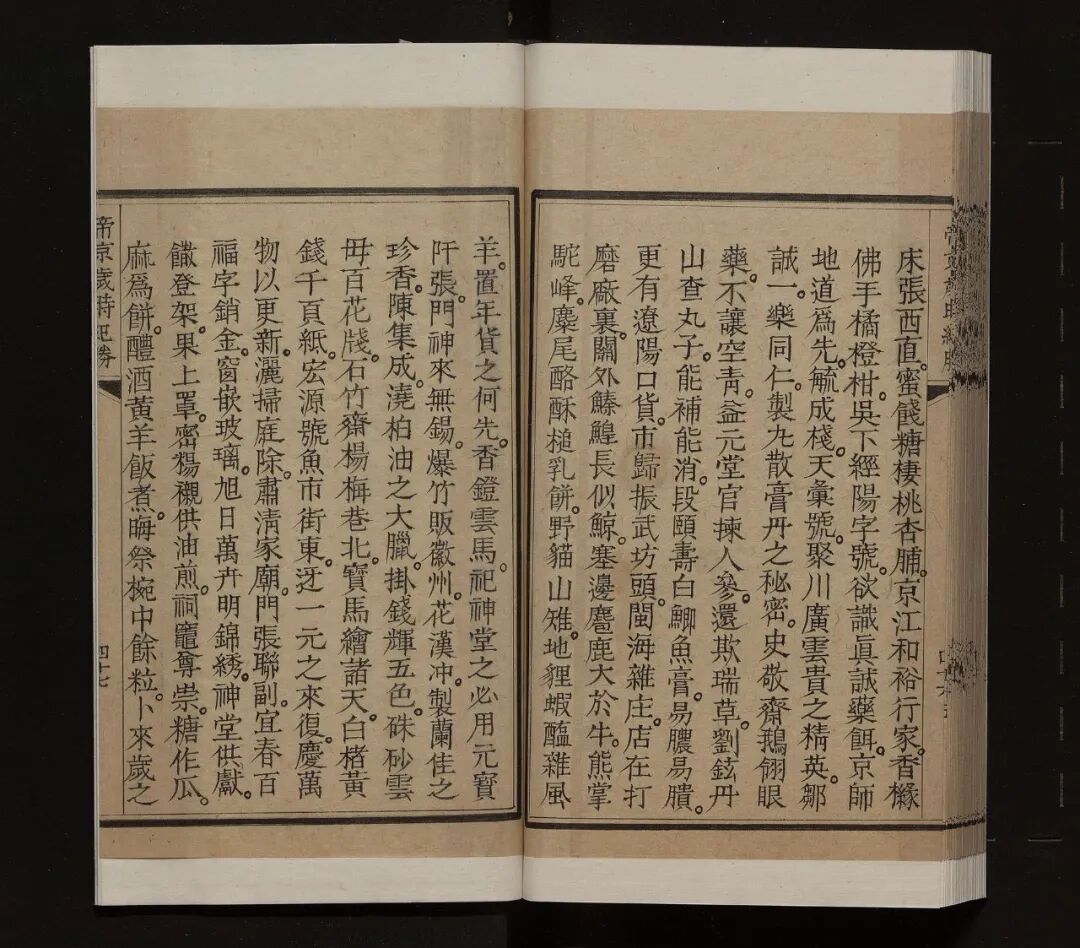 床張西直。蜜餞糖棲桃杏脯。京江和裕行家。香櫞
佛手橘橙柑。吳下經陽字號。欲識眞誠藥餌。京師
地道爲先。毓成棧天彙號。聚川廣雲貴之精英。鄒
誠一樂同仁。製丸散膏丹之秘密。史敬齋鵝翎眼
藥。不讓空青。益元堂官揀人參。還欺瑞草。劉鉉丹
山查丸子。能補能消。段頤壽白鯽魚膏。易膿易膭。
更有遼陽口貨。市歸振武坊頭。閩海雜庄。店在打
磨廠裏。關外鰟鰉長似鯨。塞邊麅鹿大於牛。熊掌
駝峰。麋尾酪酥搥乳餅。野貓山雉。地狸蝦醢雜風
羊。置年貨之何先。香鐙雲馬。祀神堂之必用元寶
阡張。門神來無錫。爆竹販徽州。花漢沖。製蘭佳之
珍香。陳集成。澆柏油之大臘。掛錢輝五色。硃砂雲
毋百花牋。石竹齋楊梅巷北。寶馬繪諸天。白楮黃
錢千頁紙。宏源號魚市街東。迓一元之來復。慶萬
物以更新。灑掃庭除。肅淸家廟。門張聯副。宜春百
福字銷金。窗嵌玻璃。旭日萬卉明錦綉。神堂供獻。
饊登架。果上罩。密楊襯供油煎。祠竈尊祟。糖作瓜。
麻爲餅。醴酒黃羊飯煮。晦祭椀中餘粒。卜來歲之
帝京歲時紀勝
四十七